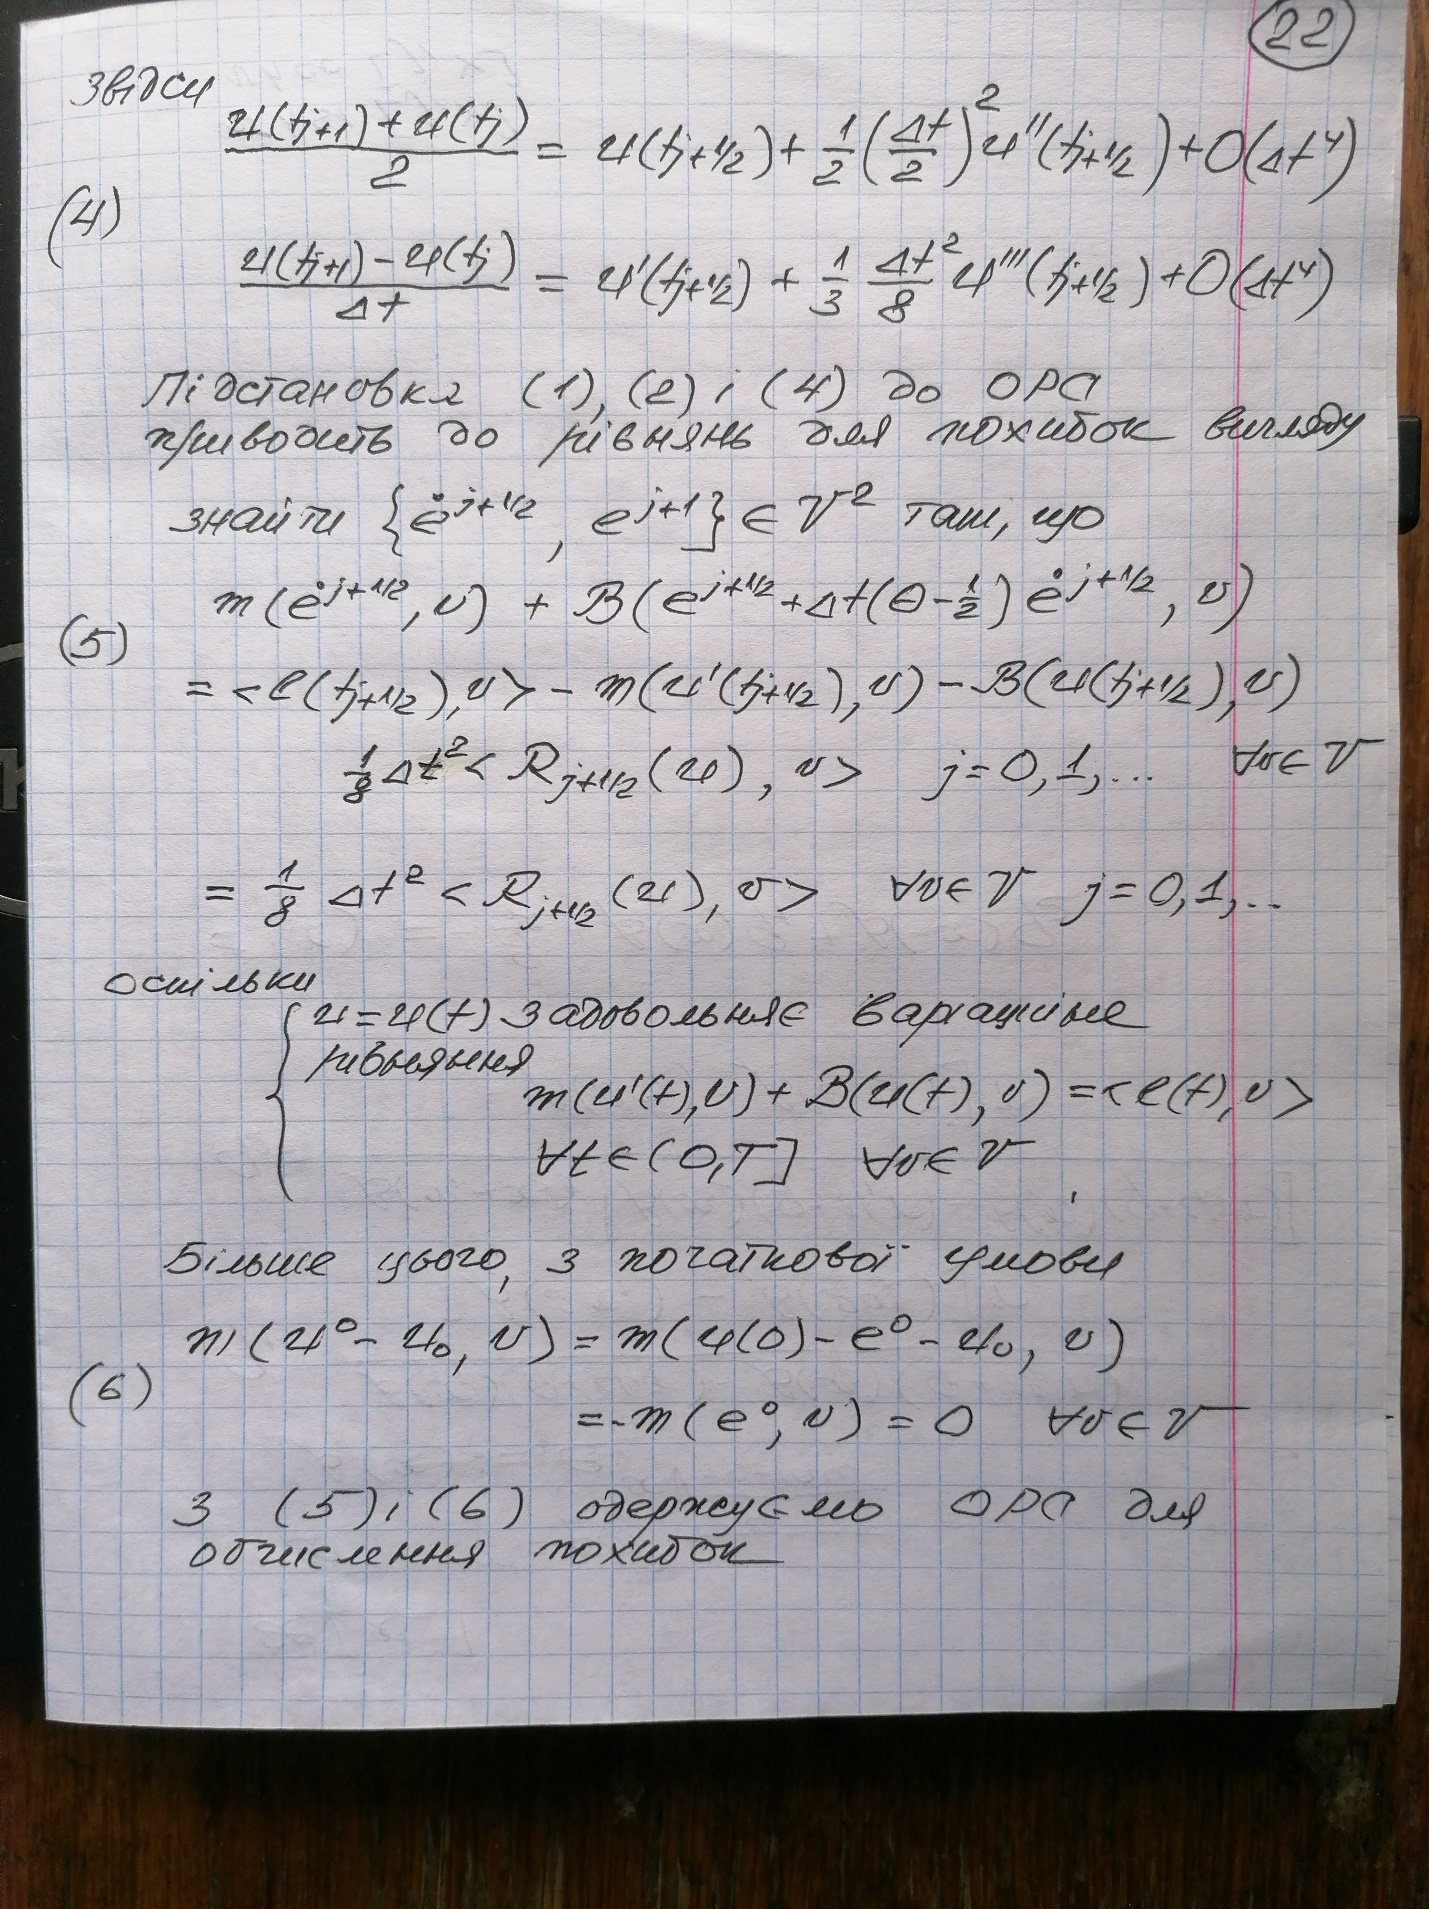 22
звідси
(u(t_{j+1}) + u(t_j))/2 = u(t_{j+1/2}) + 1/2 (Δt/2)^2 u''(t_{j+1/2}) + O(Δt^4)
(4)
(u(t_{j+1}) - u(t_j))/Δt = u'(t_{j+1/2}) + 1/3 Δt^2/8 u'''(t_{j+1/2}) + O(Δt^4)
Підстановка (1), (2) і (4) до ОРС
приводить до рівнянь для похибок вигляду
знайти {ė^{j+1/2}, e^{j+1}} ∈ V^2 такі, що
m(ė^{j+1/2}, v) + B(e^{j+1/2} + Δt(θ - 1/2) ė^{j+1/2}, v)
(5)
= <l(t_{j+1/2}), v> - m(u'(t_{j+1/2}), v) - B(u(t_{j+1/2}), v)
1/8 Δt^2 < R_{j+1/2}(u), v> j = 0, 1, ... ∀v ∈ V
= 1/8 Δt^2 < R_{j+1/2}(u), v> ∀v ∈ V j = 0, 1, ...
оскільки
{ u = u(t) задовольняє варіаційне
рівняння
m(u'(t), v) + B(u(t), v) = <l(t), v>
∀t ∈ (0, T] ∀v ∈ V,
Більше цього, з початкової умови
m(u^0 - u_0, v) = m(u(0) - e^0 - u_0, v)
(6)
= -m(e^0, v) = 0 ∀v ∈ V
З (5) і (6) одержуємо ОРС для
обчислення похибок